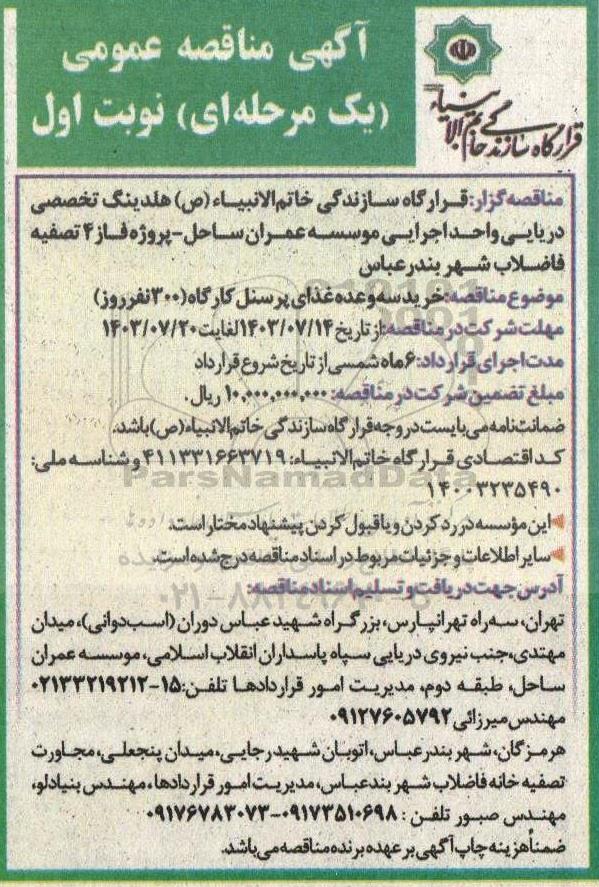 آگهی مناقصه عمومی
(یک مرحله‌ای) نوبت اول
قرارگاه سازندگی خاتم الانبیاء
مناقصه‌گزار: قرارگاه سازندگی خاتم‌الانبیاء (ص) هلدینگ تخصصی
دریایی واحد اجرایی موسسه عمران ساحل-پروژه فاز ۴ تصفیه
فاضلاب شهر بندرعباس
موضوع مناقصه: خرید سه وعده غذای پرسنل کارگاه (۳۰۰ نفر روز)
مهلت شرکت در مناقصه: از تاریخ ۱۴۰۳/۰۷/۱۴ لغایت ۱۴۰۳/۰۷/۲۰
مدت اجرای قرارداد: ۶ ماه شمسی از تاریخ شروع قرارداد
مبلغ تضمین شرکت در مناقصه: ۱۰,۰۰۰,۰۰۰,۰۰۰ ریال.
ضمانت‌نامه می‌بایست در وجه قرارگاه سازندگی خاتم الانبیاء (ص) باشد.
کد اقتصادی قرارگاه خاتم الانبیاء: ۴۱۱۳۳۱۶۶۳۷۱۹ و شناسه ملی:
۱۴۰۰۳۲۳۵۴۹۰
این مؤسسه در رد کردن و یا قبول کردن پیشنهاد مختار است.
سایر اطلاعات و جزئیات مربوط در اسناد مناقصه درج شده است.
آدرس جهت دریافت و تسلیم اسناد مناقصه:
تهران، سه‌راه تهرانپارس، بزرگراه شهید عباس دوران (اسب‌دوانی)، میدان
مهتدی، جنب نیروی دریایی سپاه پاسداران انقلاب اسلامی، موسسه عمران
ساحل، طبقه دوم، مدیریت امور قراردادها تلفن: ۱۵-۰۲۱۳۳۲۱۹۲۱۲
مهندس میرزائی ۰۹۱۲۷۶۰۵۷۹۲
هرمزگان، شهر بندرعباس، اتوبان شهید رجایی، میدان پنجعلی، مجاورت
تصفیه خانه فاضلاب شهر بندعباس، مدیریت امور قراردادها، مهندس بنیادلو،
مهندس صبور تلفن: ۰۹۱۷۳۵۱۰۶۹۸-۰۹۱۷۶۷۸۳۰۷۳
ضمناً هزینه چاپ آگهی بر عهده برنده مناقصه می‌باشد.
ParsNamadData